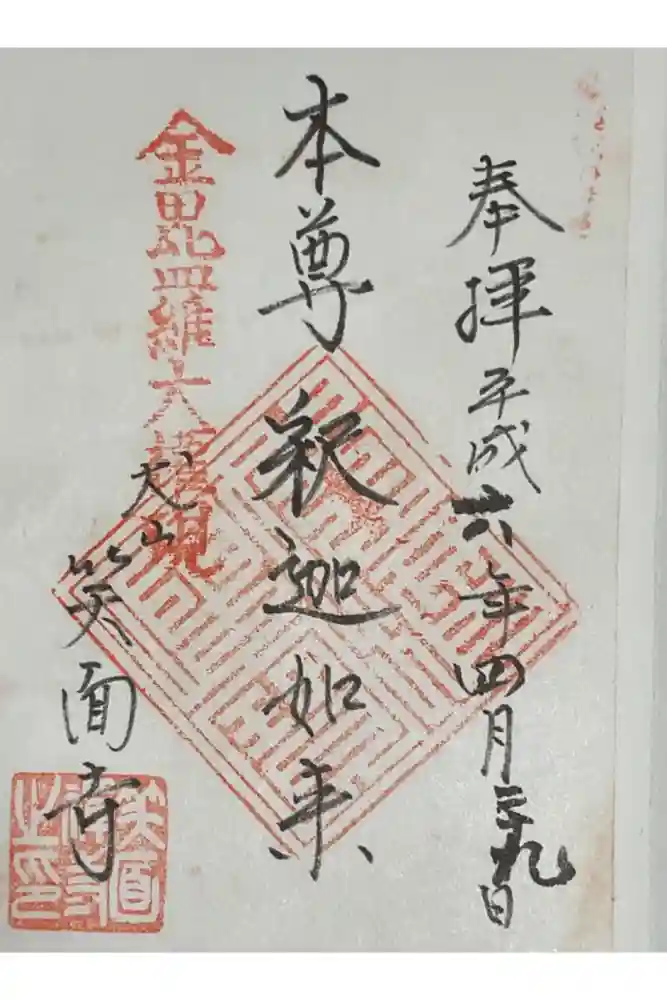 奉拝 平成六年四月二九日
本尊 釈迦如来
金毘羅大権現
犬山
笑面寺